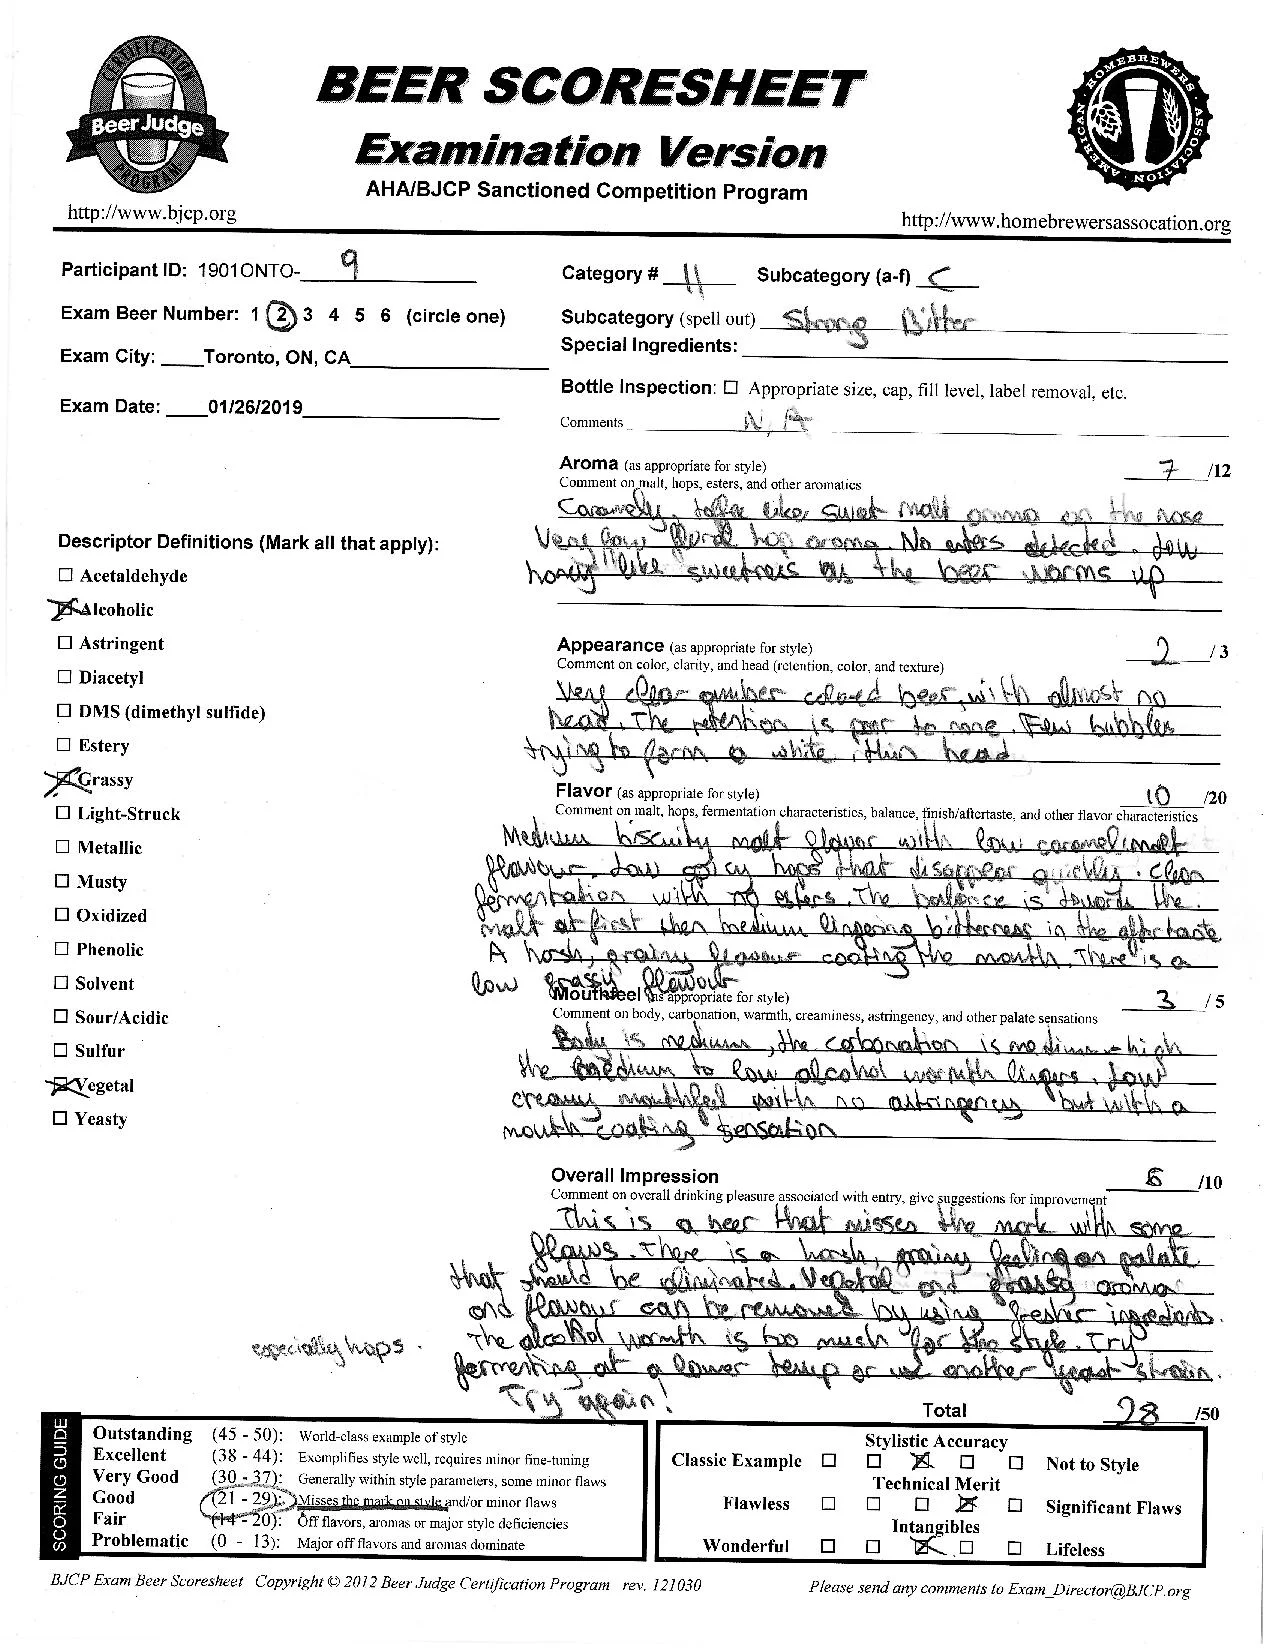 CERTIFICATION
Beer Judge
PROGRAM
http://www.bjcp.org
BEER SCORESHEET
Examination Version
AHA/BJCP Sanctioned Competition Program
AMERICAN HOMEBREWERS ASSOCIATION
http://www.homebrewersassocation.org
Participant ID: 1901ONTO- 9
Exam Beer Number: 1 2 3 4 5 6 (circle one)
Exam City: Toronto, ON, CA
Exam Date: 01/26/2019
Category # 11 Subcategory (a-f) C
Subcategory (spell out) Strong Bitter
Special Ingredients:
Bottle Inspection: ☐ Appropriate size, cap, fill level, label removal, etc.
Comments N.A
Descriptor Definitions (Mark all that apply):
☐ Acetaldehyde
☒ Alcoholic
☐ Astringent
☐ Diacetyl
☐ DMS (dimethyl sulfide)
☐ Estery
☒ Grassy
☐ Light-Struck
☐ Metallic
☐ Musty
☐ Oxidized
☐ Phenolic
☐ Solvent
☐ Sour/Acidic
☐ Sulfur
☒ Vegetal
☐ Yeasty
Aroma (as appropriate for style) 7 /12
Comment on malt, hops, esters, and other aromatics
Caramelly, toffee like, sweet malt aroma on the nose
Very low floral hop aroma. No esters detected. Low
honey like sweetness as the beer warms up
Appearance (as appropriate for style) 2 /3
Comment on color, clarity, and head (retention, color, and texture)
Very clear amber colored beer, with almost no
head. The retention is poor to none. Few bubbles
trying to form a white, thin head
Flavor (as appropriate for style) 10 /20
Comment on malt, hops, fermentation characteristics, balance, finish/aftertaste, and other flavor characteristics
Medium biscuity malt flavor with low caramel malt
flavour. Low spicy hops that disappear quickly. Clean
fermentation with no esters. The balance is towards the
malt at first then medium lingering bitterness in the aftertaste
A harsh, grainy flavour coating the mouth. There is a
low grassy flavour
Mouthfeel (as appropriate for style) 3 /5
Comment on body, carbonation, warmth, creaminess, astringency, and other palate sensations
Body is medium, the carbonation is medium-high
the medium to low alcohol warmth lingers. Low
creamy mouthfeel with no astringency but with a
mouth coating sensation
Overall Impression 6 /10
Comment on overall drinking pleasure associated with entry, give suggestions for improvement
This is a beer that misses the mark with some
flaws. There is a harsh, grainy feeling on palate
that should be eliminated. Vegetal and grassy aroma
and flavour can be removed by using fresher ingredients.
especially hops.
The alcohol warmth is too much for the style. Try
fermenting at a lower temp or use another yeast strain.
Try again!
Total 28 /50
SCORING GUIDE
Outstanding (45 - 50): World-class example of style
Excellent (38 - 44): Exemplifies style well, requires minor fine-tuning
Very Good (30 - 37): Generally within style parameters, some minor flaws
Good (21 - 29): Misses the mark on style and/or minor flaws
Fair (14 - 20): Off flavors, aromas or major style deficiencies
Problematic (0 - 13): Major off flavors and aromas dominate
Stylistic Accuracy
Classic Example ☐ ☐ ☒ ☐ ☐ Not to Style
Technical Merit
Flawless ☐ ☐ ☐ ☒ ☐ Significant Flaws
Intangibles
Wonderful ☐ ☐ ☒ ☐ ☐ Lifeless
BJCP Exam Beer Scoresheet Copyright © 2012 Beer Judge Certification Program rev. 121030
Please send any comments to Exam_Director@BJCP.org